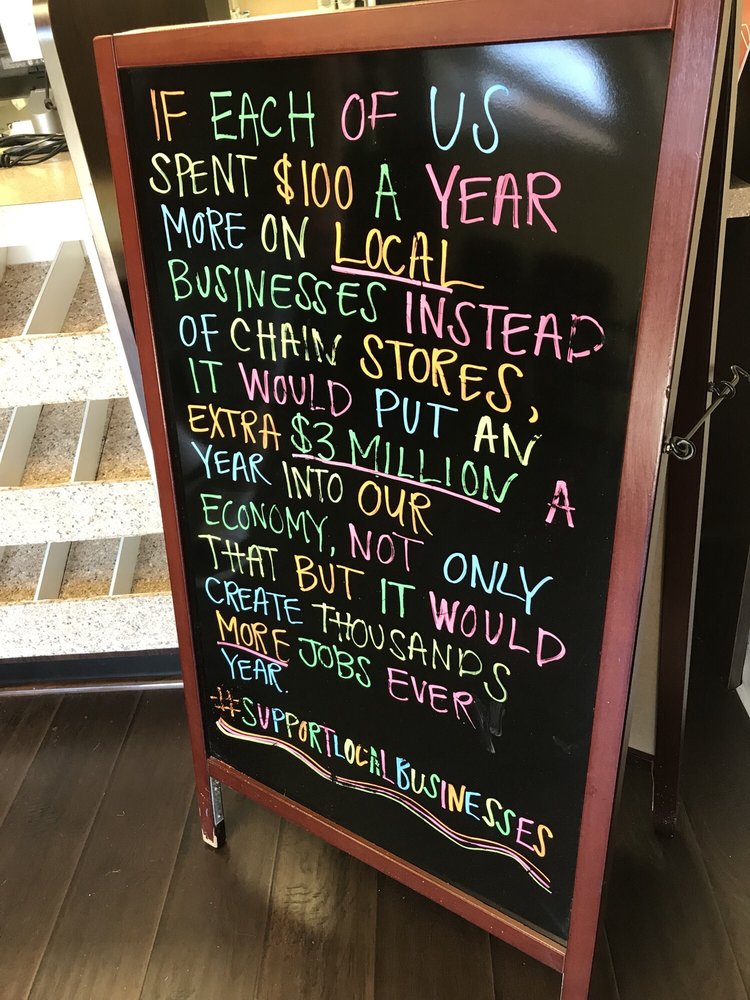 IF EACH OF US
SPENT $100 A YEAR
MORE ON LOCAL
BUSINESSES INSTEAD
OF CHAIN STORES,
IT WOULD PUT AN
EXTRA $3 MILLION A
YEAR INTO OUR
ECONOMY, NOT ONLY
THAT BUT IT WOULD
CREATE THOUSANDS
MORE JOBS EVERY
YEAR.
#SUPPORTLOCALBUSINESSES